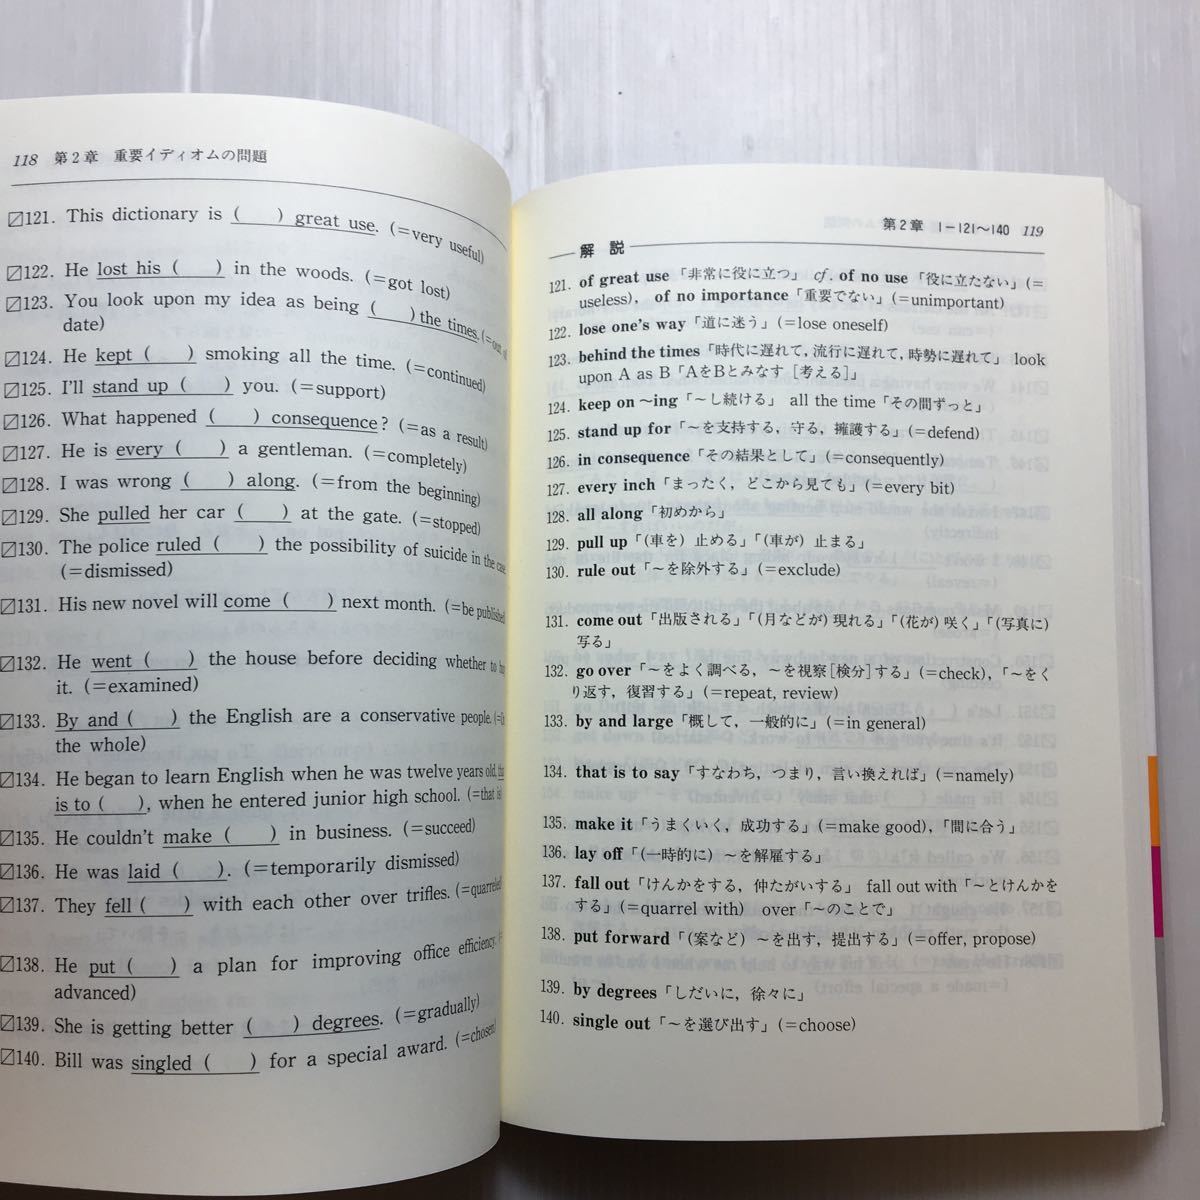 118 第2章 重要イディオムの問題
121. This dictionary is (   ) great use. (=very useful)
122. He lost his (   ) in the woods. (=got lost)
123. You look upon my idea as being (   ) the times. (=out of
date)
124. He kept (   ) smoking all the time. (=continued)
125. I'll stand up (   ) you. (=support)
126. What happened (   ) consequence? (=as a result)
127. He is every (   ) a gentleman. (=completely)
128. I was wrong (   ) along. (=from the beginning)
129. She pulled her car (   ) at the gate. (=stopped)
130. The police ruled (   ) the possibility of suicide in the case.
(=dismissed)
131. His new novel will come (   ) next month. (=be published)
132. He went (   ) the house before deciding whether to
it. (=examined)
133. By and (   ) the English are a conservative people. (=
the whole)
134. He began to learn English when he was twelve years old,
is to (   ), when he entered junior high school. (=that is)
135. He couldn't make (   ) in business. (=succeed)
136. He was laid (   ). (=temporarily dismissed)
137. They fell (   ) with each other over trifles. (=quarreled)
138. He put (   ) a plan for improving office efficiency. (=
advanced)
139. She is getting better (   ) degrees. (=gradually)
140. Bill was singled (   ) for a special award. (=chosen)
第2章 1-121〜140 119
解説
121. of great use「非常に役に立つ」 cf. of no use「役に立たない」(=
useless), of no importance「重要でない」(=unimportant)
122. lose one's way「道に迷う」(=lose oneself)
123. behind the times「時代に遅れて，流行に遅れて，時勢に遅れて」 look
upon A as B「AをBとみなす［考える］」
124. keep on 〜ing「〜し続ける」 all the time「その間ずっと」
125. stand up for「〜を支持する，守る，擁護する」(=defend)
126. in consequence「その結果として」(=consequently)
127. every inch「まったく，どこから見ても」(=every bit)
128. all along「初めから」
129. pull up「(車を) 止める」「(車が) 止まる」
130. rule out「〜を除外する」(=exclude)
131. come out「出版される」「(月などが) 現れる」「(花が) 咲く」「(写真に)
写る」
132. go over「〜をよく調べる，〜を視察［検分］する」(=check)，「〜をく
り返す，復習する」(=repeat, review)
133. by and large「概して，一般的に」(=in general)
134. that is to say「すなわち，つまり，言い換えれば」(=namely)
135. make it「うまくいく，成功する」(=make good)，「間に合う」
136. lay off「(一時的に) 〜を解雇する」
137. fall out「けんかをする，仲たがいする」 fall out with「〜とけんかを
する」(=quarrel with) over「〜のことで」
138. put forward「(案など) 〜を出す，提出する」(=offer, propose)
139. by degrees「しだいに，徐々に」
140. single out「〜を選び出す」(=choose)